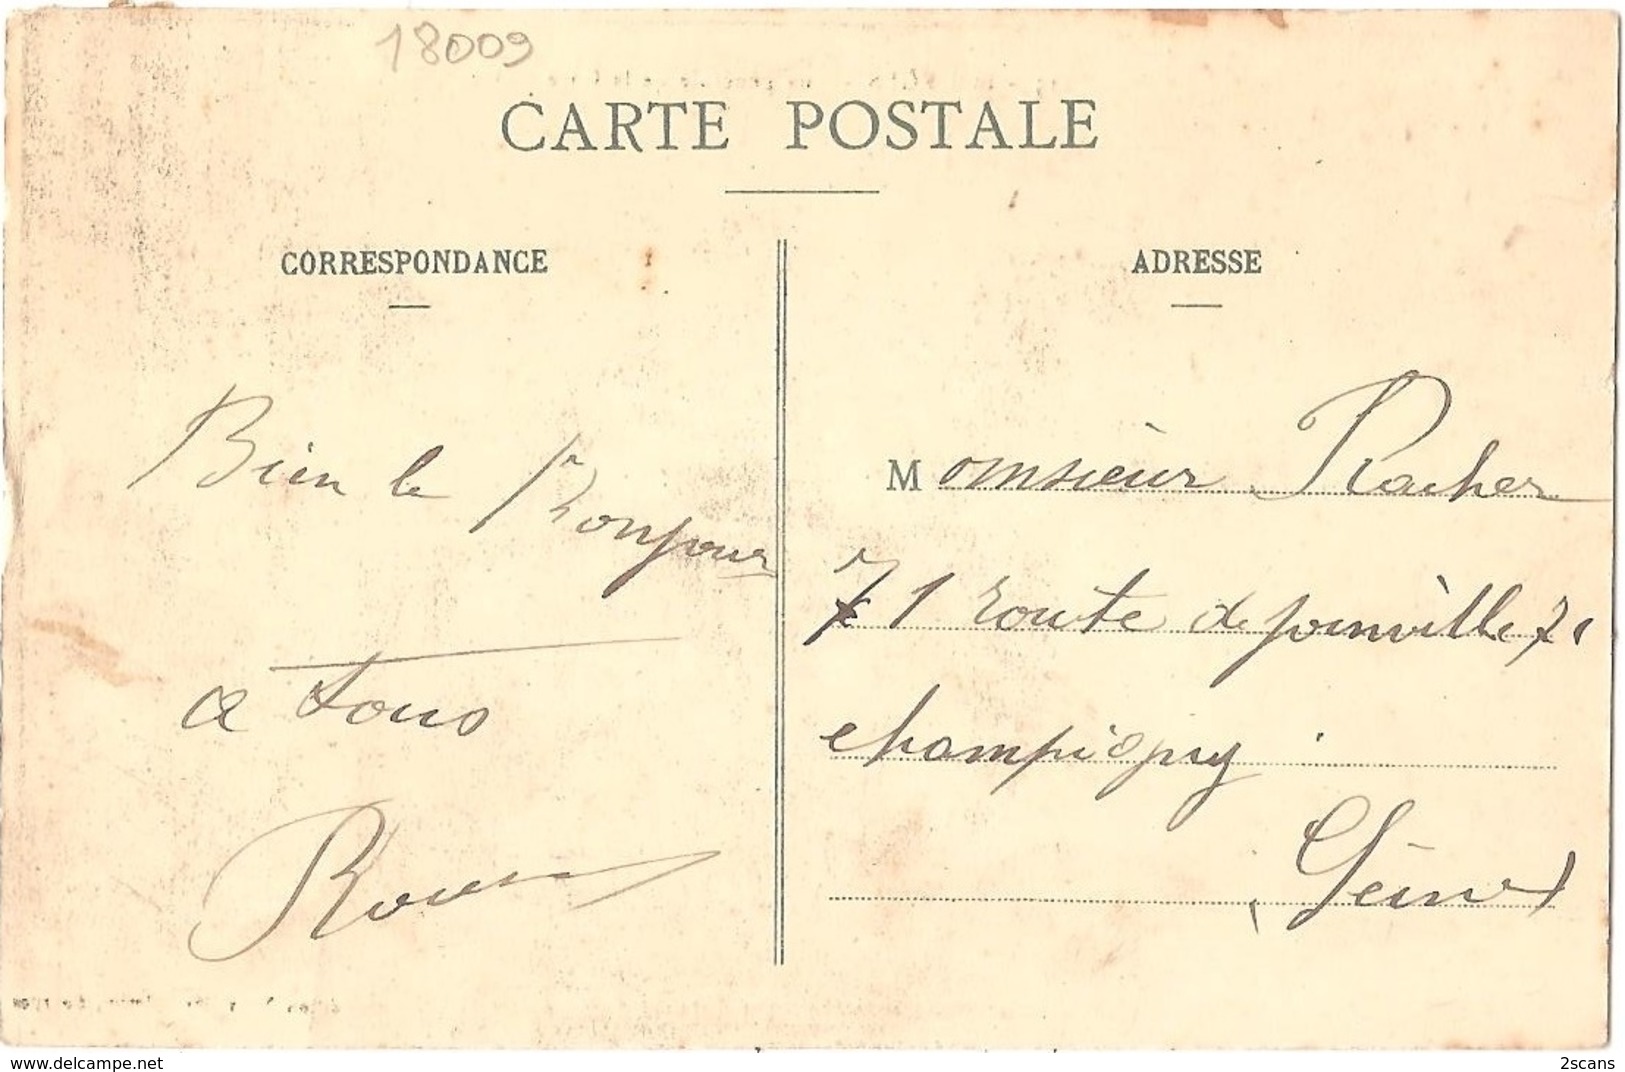 18009
CARTE POSTALE
CORRESPONDANCE
Bien le Bonjour
a tous
ADRESSE
Monsieur Racher
71 route de joinville 71
champigny
(Seine)
www.delcampe.net
2scans